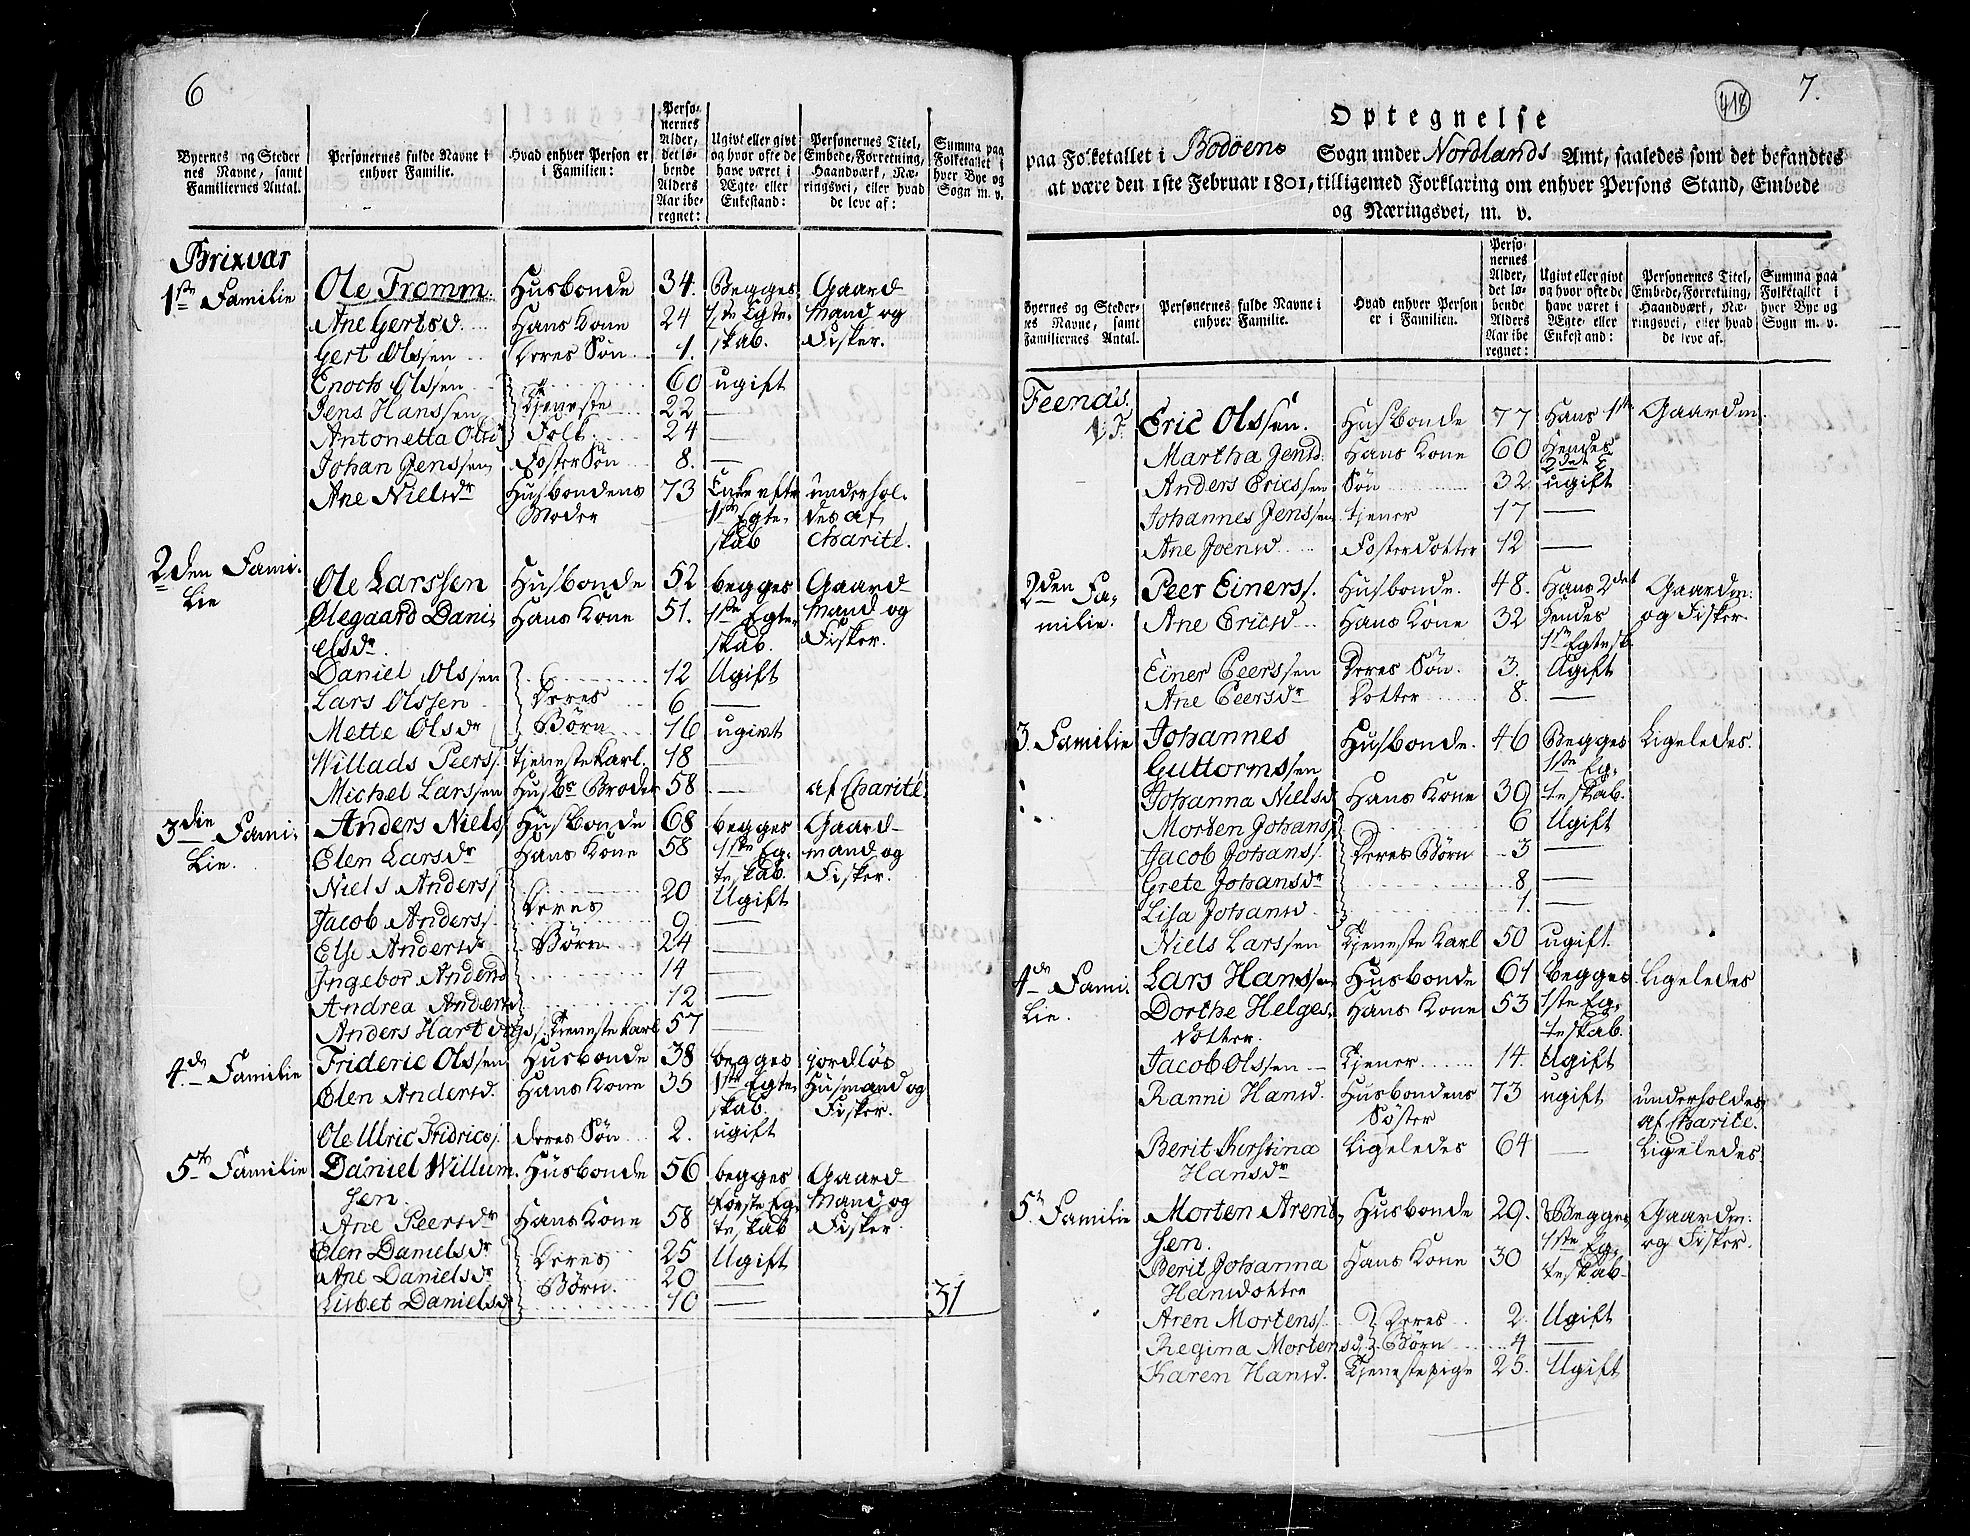 6
Byernes og Steder
nes Navne, samt
Familiernes Antal.
Personernes fulde Navne i
enhver Familie.
Hvad enhver Person er
i Familien:
Perso-
nernes
Alder,
det lø-
bende
Alders
Aar ibe-
regnet:
Ugivt eller givt
og hvor ofte de
have været i
Ægte- eller
Enkestand:
Personernes Titel,
Embede, Forretning,
Haandværk, Næ-
ringsvei, eller hvad
de leve af:
Summa paa
Folketallet i
hver Bye og
Sogn m. v.
Brixvær
1ste Familie Ole Fromm. Husbonde 34. Begges Gaard-
Ane Gertsd. Hans Kone 24 1ste Egte- Mand og
Gert Olssen Deres Søn 1. skab. Fisker.
Enoch Olssen 60 ugift
Jens Hanssen Tjeneste 22 —
Antonetta Olsd Folk 24 —
Johan Jenssen FosterSøn 8. —
Ane Nielsdr Husbondens 73 Enke efter underhol-
Moder 1ste Egte- des af
skab Charité.
2den Fami- Ole Larssen Husbonde 52 begges Gaard-
lie Olegaard Dani- Hans Kone 51. 1ste Egte- Mand og
elsdr. skab. Fisker.
Daniel Olssen 12 Ugift
Lars Olssen Deres 6 —
Mette Olsdr Børn 16 ugivt
Willads Peers. Tjeneste Karl. 18 —
Michel Larssen Husbs Broder 58 — af Charité
3die Fami- Anders Niels. Husbonde 68 begges Gaard-
lie. Elen Larsdr Hans Kone 58 1ste Eg- mand og
teskab. Fisker.
Niels Anders. 20 Ugift
Jacob Anders. Deres 9 —
Else Andersdr Børn 24 —
Ingebor Andersd 14 —
Andrea Andersd 12 —
Anders Hart Tjeneste Karl 57 —
4de Familie Frideric Olssen Husbonde 38 begges jordløs
Elen Andersd. Hans Kone 35 1ste Egte- Husmand og
skab. Fisker.
Ole Ulric Fridrics. deres Søn 2. ugift
5te Familie Daniel Willum- Husbonde 56 begges Gaard-
sen. Første Eg- Mand og
Ane Peersdr Hans Kone 58 teskab Fisker.
Elen Danielsdr Deres 25 Ugift
Ane Danielsdr Børn. 20 —
Lisbet Danielsd 10 — 31
7.
418
Optegnelse
paa Folketallet i Bodøens Sogn under Nordlands Amt, saaledes som det befandtes
at være den 1ste Februar 1801, tilligemed Forklaring om enhver Persons Stand, Embede
og Næringsvei, m. v.
Byernes og Steder-
nes Navne, samt
Familiernes Antal.
Personernes fulde Navne i
enhver Familie.
Hvad enhver Person
er i Familien.
Perso-
nernes
Alder,
det lø-
bende
Alders
Aar ibe-
regnet:
Ugivt eller givt
og hvor ofte de
have været i
Ægte- eller
Enkestand:
Personernes Titel,
Embede, Forretning,
Haandværk, Næ-
ringsvei, eller hvad
de leve af.
Summa paa
Folketallet i
hver Bye og
Sogn m. v.
Feenæs.
1. F. Eric Olssen. Husbonde 77 Hans 1ste Gaardm.
Martha Jensd. Hans Kone 60 Hendes
2det E
Anders Ericssen Søn 32 ugift
Johannes Jenssen tjener 17 —
Ane Joensd. Fosterdotter 12 —
2den Fa- Peer Einerss. Husbonde. 48. Hans 2det Gaardm.
milie. Ane Ericsd Hans Kone 32 Hendes og Fisker.
1ste Egtesk.
Einer Peerssen Deres Søn. 3. Ugift
Ane Peersdr Dotter 8. —
3. Familie Johannes Husbonde. 46 Begges Ligeledes.
Guttormssen 1ste Eg-
Johanna Nielsd Hans Kone 39 teskab.
Morten Johans. 6 Ugift
Jacob Johans. Deres Børn 3 —
Grete Johansdr 8 —
Lisa Johansd 1. —
Niels Larssen Tjeneste Karl 50 ugift.
4de Fami- Lars Hanssen Husbonde 61 begges Ligeledes
lie. Dorthe Helges- Hans Kone 53 1ste Eg-
dotter. teskab.
Jacob Olssen Tjener 14. Ugift
Ranni Hansd. Husbondens 73 ugift underholdes
Søster af Charité.
Berit Kirstina Ligeledes 64 — Ligeledes.
Hansdr
5te Familie Morten Arent- Husbonde 29. Begges Gaardm.
sen. 1ste Eg- og Fisker.
Berit Johanna Hans Kone 30 teskab
Hansdotter
Aren Mortens. Deres 2. Ugift
Regina Mortensd. Børn 4 —
Karen Hansd. Tjenestepige 25. Ugift